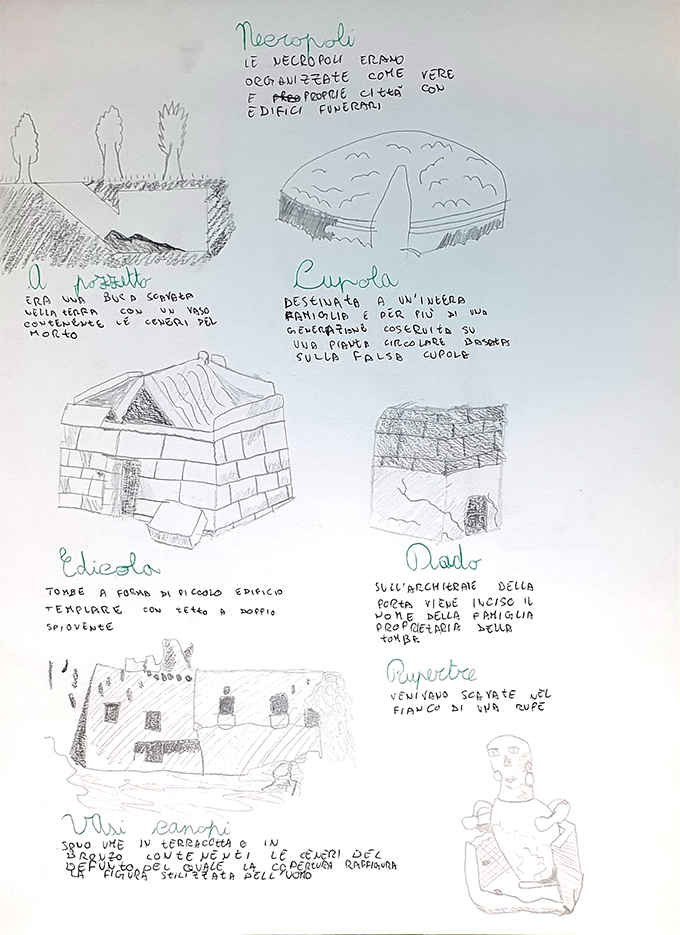 Necropoli
LE NECROPOLI ERANO
ORGANIZZATE COME VERE
E PROPRIE CITTÀ CON
EDIFICI FUNERARI
A pozzetto
ERA UNA BUCA SCAVATA
NELLA TERRA CON UN VASO
CONTENENTE LE CENERI DEL
MORTO
Cupola
DESTINATA A UN'INTERA
FAMIGLIA E PER PIÙ DI UNA
GENERAZIONE COSTRUITA SU
UNA PIANTA CIRCOLARE BASATA
SULLA FALSA CUPOLA
Edicola
TOMBE A FORMA DI PICCOLO EDIFICIO
TEMPLARE CON TETTO A DOPPIO
SPIOVENTE
Dado
SULL'ARCHITRAVE DELLA
PORTA VIENE INCISO IL
NOME DELLA FAMIGLIA
PROPRIETARIA DELLA
TOMBA
Rupertre
VENIVANO SCAVATE NEL
FIANCO DI UNA RUPE
Vasi canopi
SONO URNE IN TERRACOTTA O IN
BRONZO CONTENENTI LE CENERI DEL
DEFUNTO DEL QUALE LA COPERTURA RAFFIGURA
LA FIGURA STILIZZATA DELL'UOMO